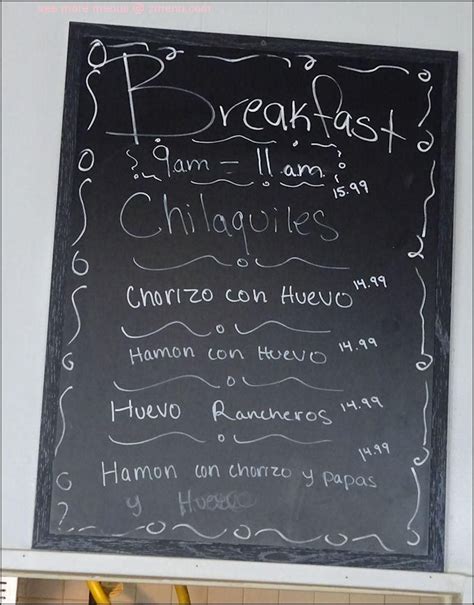 see more menus @ zmenu.com
Breakfast
9am - 11 am
Chilaquiles 15.99
Chorizo con Huevo 14.99
Hamon con Huevo 14.99
Huevo Rancheros 14.99
Hamon con chorizo y papas 14.99
y